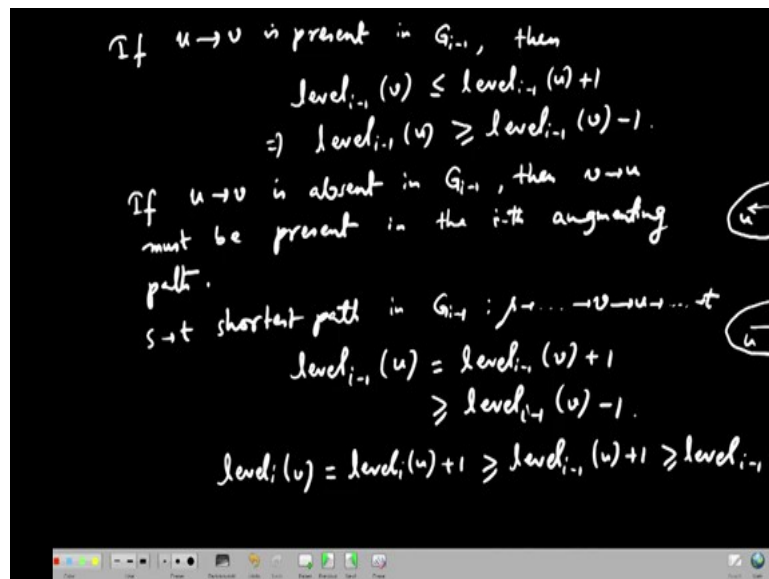 If u→v is present in G_{i-1}, then
level_{i-1}(v) ≤ level_{i-1}(u)+1
⇒ level_{i-1}(u) ≥ level_{i-1}(v)-1.
If u→v is absent in G_{i-1}, then v→u
must be present in the i-th augmenting
path.
s→t shortest path in G_{i-1} : s→...→v→u→...→t
level_{i-1}(u) = level_{i-1}(v)+1
≥ level_{i-1}(v)-1.
level_i(v) = level_i(u)+1 ≥ level_{i-1}(u)+1 ≥ level_{i-1}
u
u